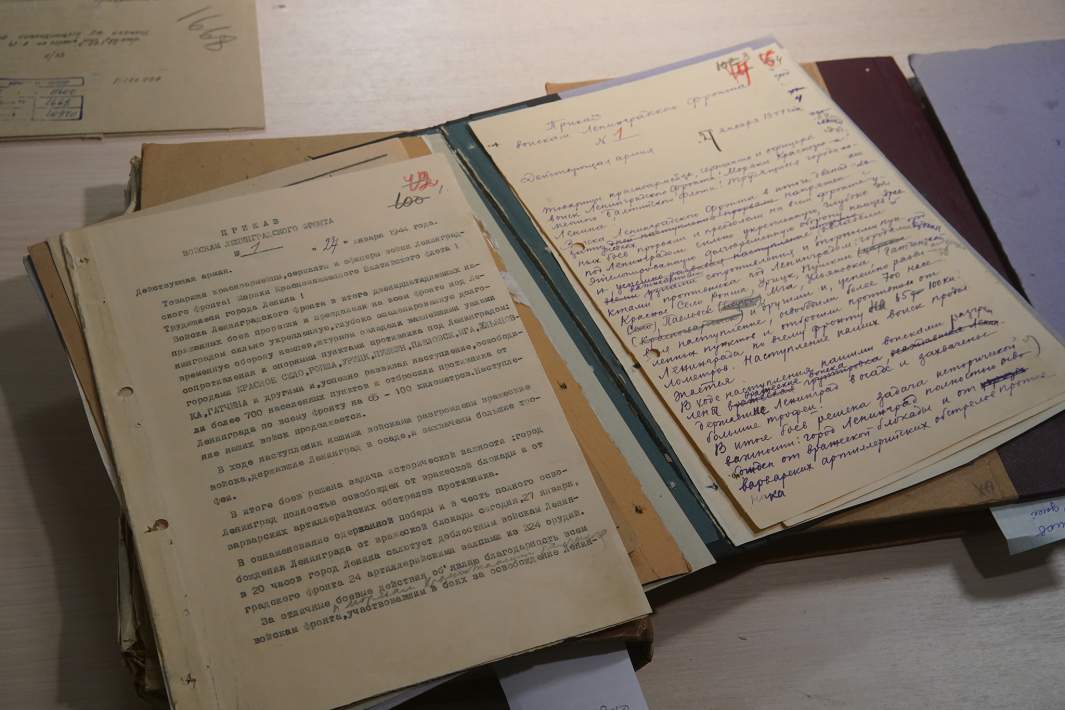 1668
42
600
ПРИКАЗ
ВОЙСКАМ ЛЕНИНГРАДСКОГО ФРОНТА
№ 1 " 27 " января 1944 года.
Действующая армия.
Товарищи красноармейцы, сержанты и офицеры войск Ленинград-
ского фронта! Моряки Краснознаменного Балтийского флота!
Трудящиеся города Ленина!
Войска Ленинградского фронта в итоге двенадцатидневных на-
пряженных боев прорвали и преодолели на всем фронте под Ле-
нинградом сильно укрепленную, глубоко эшелонированную долго-
временную оборону немцев, штурмом овладели важнейшими узлами
сопротивления и опорными пунктами противника под Ленинградом:
городами КРАСНОЕ СЕЛО, РОПША, УРИЦК, ПУШКИН, ПАВЛОВСК, МГА, УЛЬЯНОВ-
КА, ГАТЧИНА и другими и, успешно развивая наступление, освободи-
ли более 700 населенных пунктов и отбросили противника от
Ленинграда по всему фронту на 65 - 100 километров. Наступле-
ние наших войск продолжается.
В ходе наступления нашими войсками разгромлены вражеские
войска, державшие Ленинград в осаде, и захвачены большие тро-
феи.
В итоге боев решена задача исторической важности: город
Ленинград полностью освобожден от вражеской блокады и от
варварских артиллерийских обстрелов противника.
В ознаменование одержанной победы и в честь полного осво-
бождения Ленинграда от вражеской блокады сегодня, 27 января,
в 20 часов город Ленина салютует доблестным войскам Ленин-
градского фронта 24 артиллерийскими залпами из 324 орудий.
За отличные боевые действия об'являю благодарность всем
войскам фронта, участвовавшим в боях за освобождение Ленин-
Приказ
войскам Ленинградского фронта
N 1
января 1944
Действующая армия
Товарищи красноармейцы, сержанты и офицеры
войск Ленинградского фронта! Моряки Красноз-
менного Балтийского флота! Трудящиеся города
Ленина!
Войска Ленинградского фронта в итоге
ных боев прорвали и преодолели на всем фронте
под Ленинградом сильно укрепленную, глубоко
эшелонированную долговременную
сопротивления и опорными пун-
ктами противника под Ленинградом:
Красное Село, Ропша, Урицк, Пушкин,
Павловск, Мга, Ульяновка, Гатчина
и другими и, успешно разви-
вая наступление, освободили более 700 насе-
ленных пунктов и отбросили противника от
Ленинграда по всему фронту на 65 до 100 кило-
лометров. Наступление наших войск продол-
жается.
В ходе наступления нашими войсками разгром-
лены вражеские войска
державшие Ленинград в осаде и захвачены
большие трофеи.
В итоге боев решена задача исторической
важности: город Ленинград полностью осво-
божден от вражеской блокады и от
варварских артиллерийских обстрелов против-
ника